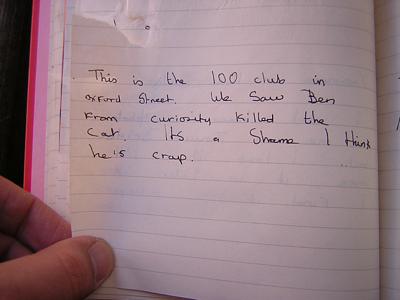 This is the 100 club in
oxford Street. We Saw Ben
From curiosity killed the
Cat. Its a Shame I think
he's crap.